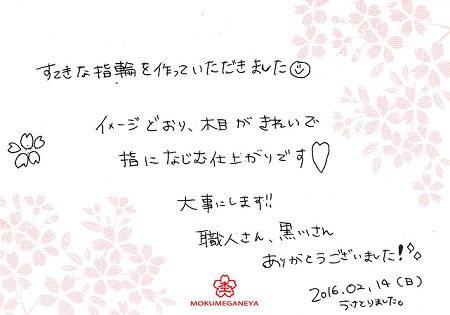 すてきな指輪を作っていただきました
イメージどおり、木目がきれいで
指になじむ仕上がりです
大事にします!!
職人さん、黒川さん
ありがとうございました!
2016.02.14(日)
うけとりました。
MOKUMEGANEYA